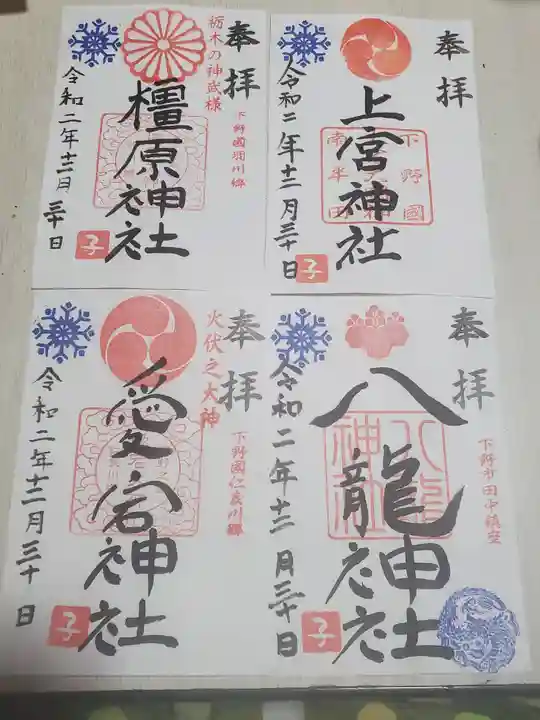 奉拝
上宮神社
下野國
南半田
令和二年十二月三十日
子
奉拝
栃木の神武様
下野國羽川郷
橿原神社
令和二年十二月三十日
子
奉拝
下野国田中鎮座
八龍神社
八龍
神社
令和二年十二月三十日
子
奉拝
火伏之大神
下野國仁良川郷
愛宕神社
令和二年十二月三十日
子